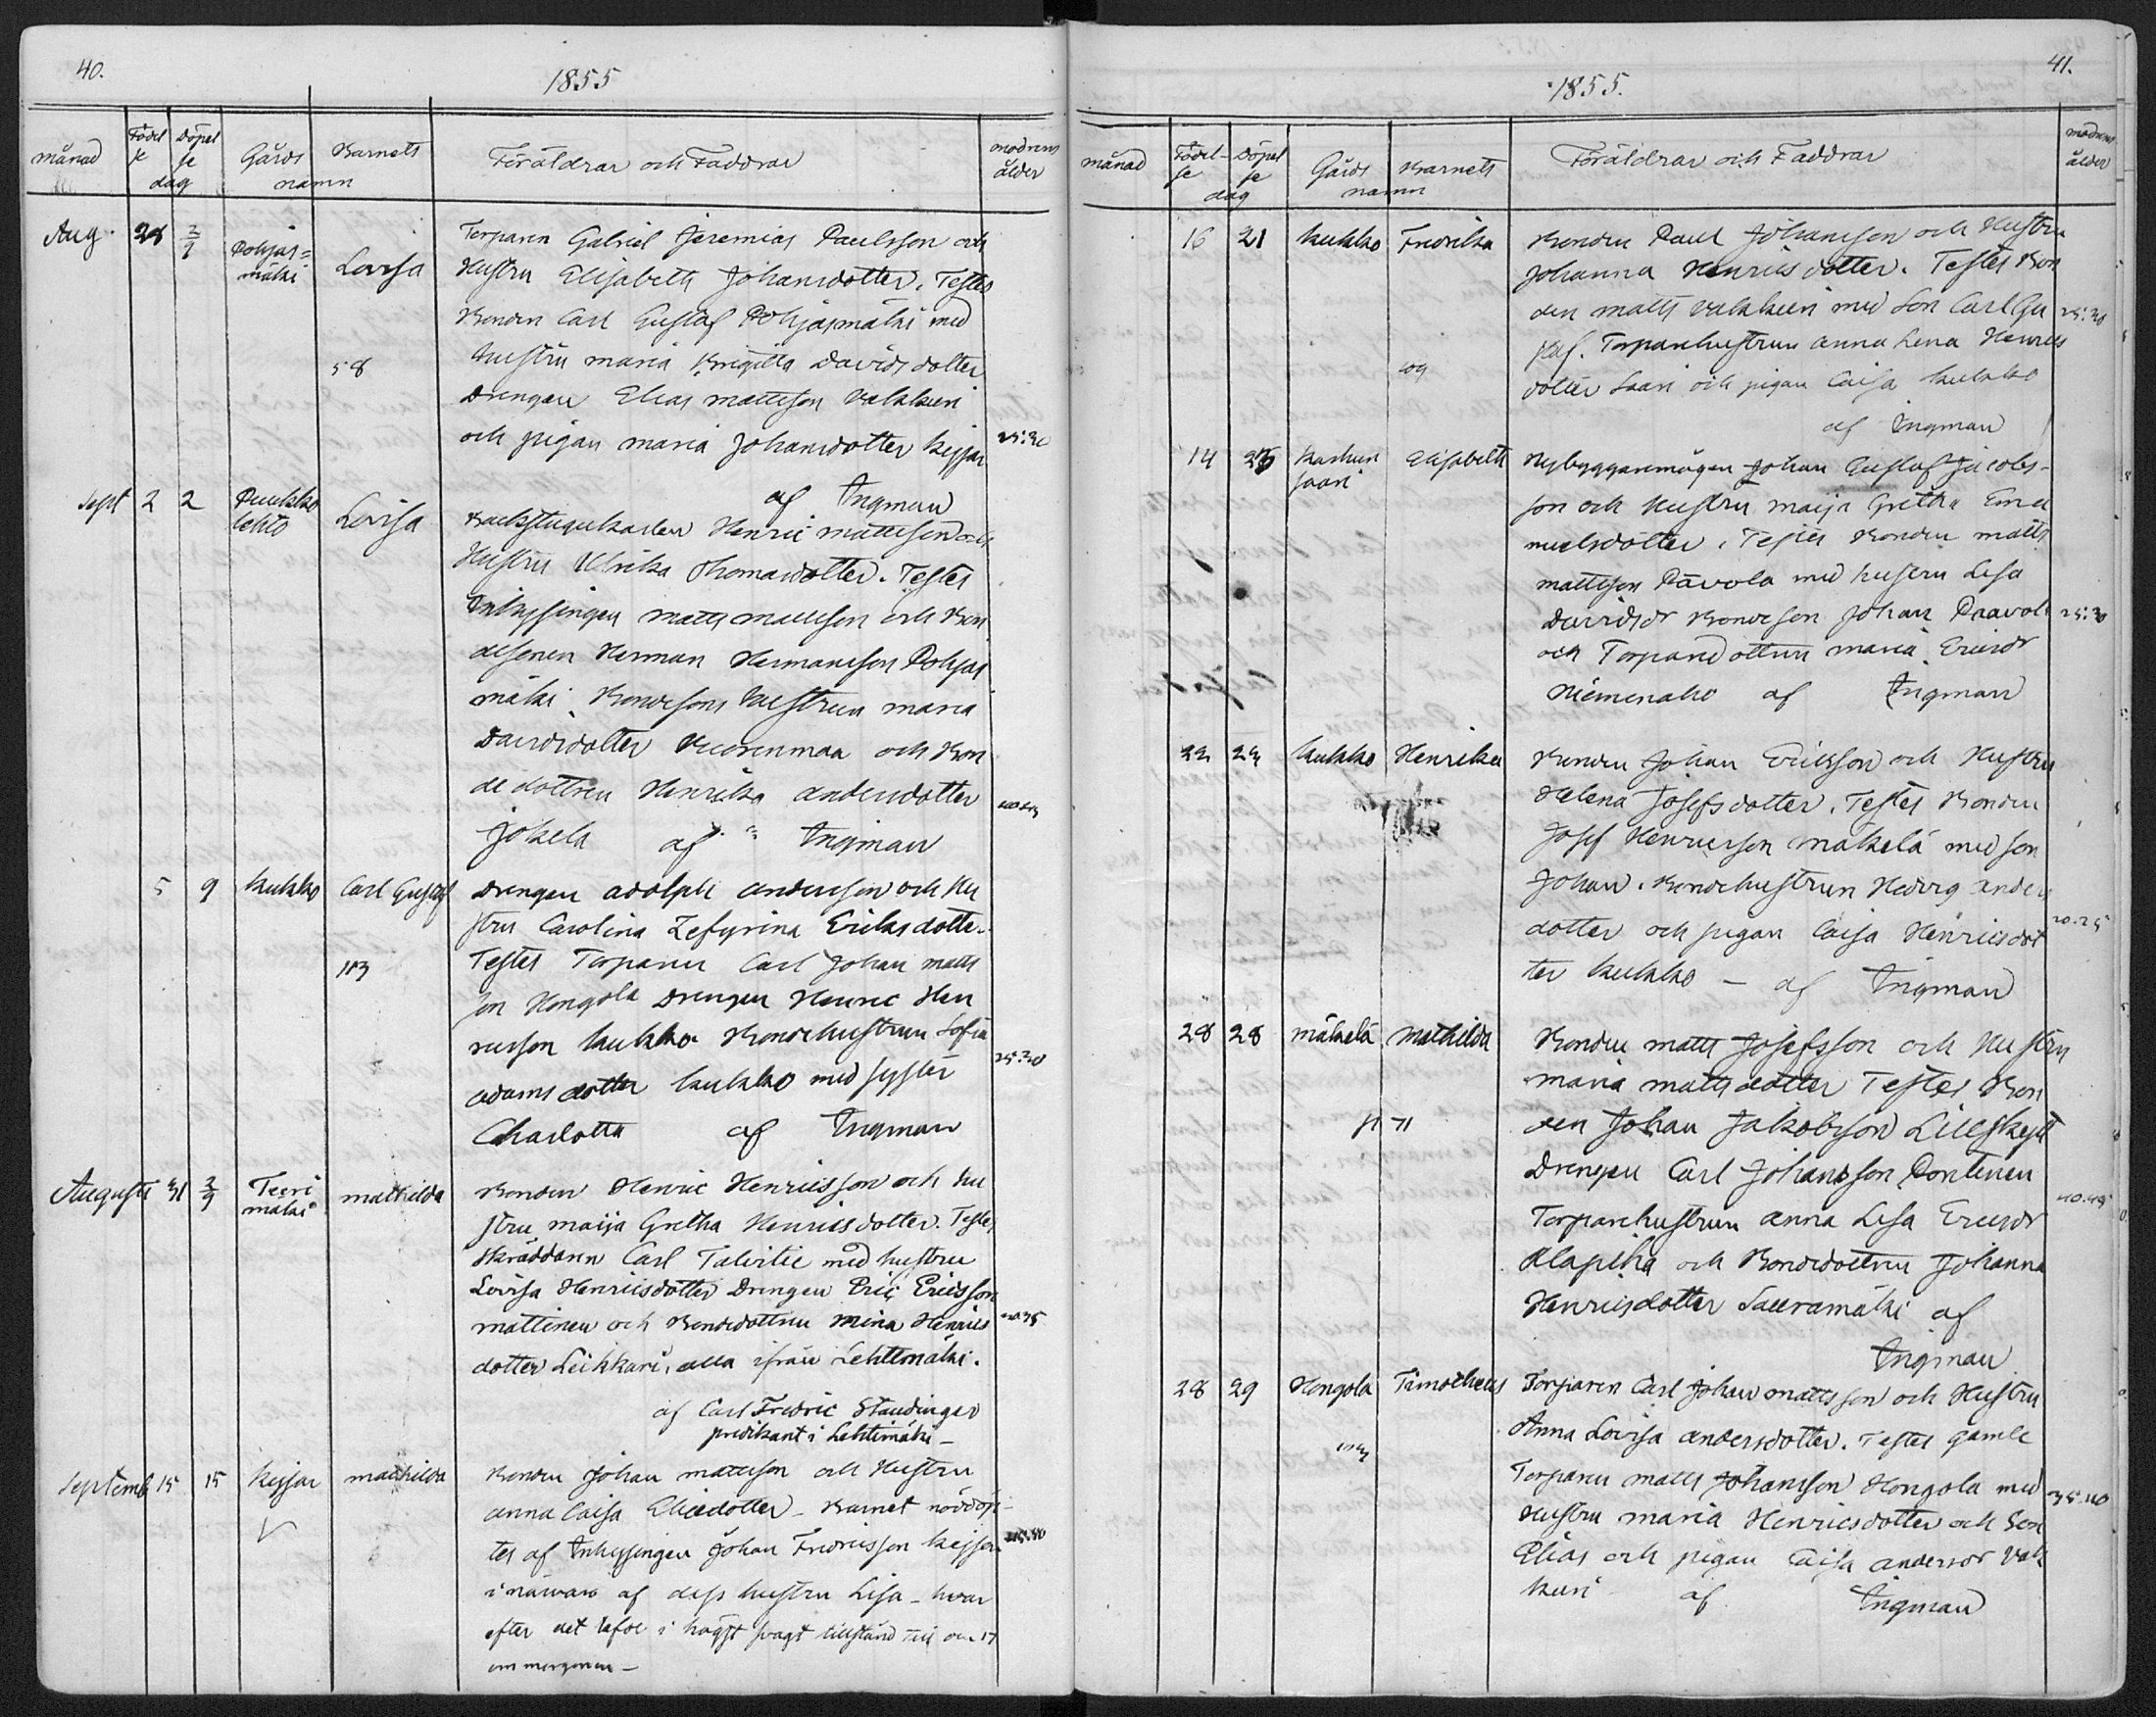 40.
1855
månad
Födel
se
Döpel
se
dag
Gårds
Barnets
namn
Föräldrar och Faddrar
modrens
ålder
Aug. 28 2/9 Pohjas=
mäki
Lovisa
58
Torparen Gabriel Jeremias Paulsson och
Hustru Elisabeth Johansdotter. Testes
Bonden Carl Gustaf Pohjasmäki med
hustru Maria Brigitta Davidsdotter
Drengen Elias Mattsson Valkkeri
och pigan Maria Johansdotter Keisar 25:30
af Ingman
Sept 2 2 Puukko
lehto
Lovisa
Backstugukarlen Henric Mattsson och
Hustru Ulrika Thomasdotter. Testes
Inhysingen Matts Mattsson och Bon
desonen Herman Hermansson Pohjas
mäki. Bondesons hustrun Maria
Davidsdotter Vuorenmaa och Bon
de dottren Henrika Andersdotter
Jokela af Ingman
5 9 Kukko Carl Gustaf
113
Drengen Adolph Andersson och Hu
stru Carolina Zefyrina Eriksdotter.
Testes Torparen Carl Johan Matts
son Hongola Drengen Henric Hen
ricsson Kukko. Bondehustrun Sofia
Adamsdotter Kukko med syster 25:30
Charlotta af Ingman
Augusti 31 2/9 Teeri
mäki
Mathilda
Bonden Henric Henricsson och Hu
stru Maija Gretha Henricsdotter. Testes
Skräddaren Carl Talvitie med hustru
Lovisa Henricsdotter Drengen Eric Ericsson
Mattinen och Bondedottren Mina Henrics
dotter Leikkari, alla ifrån Lehtimäki.
af Carl Fredric Staudinger
predikant i Lehtimäki –
Septemb 15 15 Keisar Mathilda
Bonden Johan Mattsson och Hustru
Anna Caisa Eliedotter – Barnet nöddöp-
tes af Inhysingen Johan Fredricsson Keisar
i närvaro af dess hustru Lisa – hvar
efter det lefde i högst svagt tillstånd till den 17
om morgonen –
41.
1855.
månad
Födel-
se
Döpel
se
dag
Gårds
Barnets
namn
Föräldrar och Faddrar
modrens
ålder
16 21 Kukko Fredrika
109
Bonden Paul Johansson och Hustru
Johanna Henricsdotter. Testes Bon
den Matts Valkkeri med Son Carl Gu 25:30
staf. Torparehustrun Anna Lena Henrics
dotter Saari och pigan Caisa Kukko
af Ingman
14 23 Karhun
saari
Elisabeth
Nybyggaremågen Johan Gustaf Jacobs-
son och Hustru Maija Gretha Ema
nuelsdotter. Testes Bonden Matts
Mattsson Pavola med hustru Lisa
Davidsdr Bondeson Johan Paavola 25:30
och Torparedottren Maria Ericsdr
Niemenaho af Ingman
22 23 Kukko Henrika
Bonden Johan Ericsson och Hustru
Helena Josefsdotter. Testes Bonden
Josef Henricsson Mäkelä med son
Johan. Bondehustrun Hedvig Anders
dotter och pigan Caisa Henricsdot 20:25
ter Kukko – af Ingman
28 28 Mäkelä Mathilda
Bonden Matts Josefsson och Hustru
Maria Mattsdotter Testes Bon
den Johan Jakobsson Lillskytt
Drengen Carl Johansson Pontinen
Torparehustrun Anna Lisa Ericsdr
Alapiha och Bondedottren Johanna
Henricsdotter Sauramäki af
Ingman
28 29 Hongola Timotheus
Torparen Carl Johan Mattsson och Hustru
Anna Lovisa Andersdotter. Testes gamle
Torparen Matts Johansson Hongola med 35:40
Hustru Maria Henricsdotter och Son
Elias och pigan Caisa Andersdr Valk
keri af Ingman